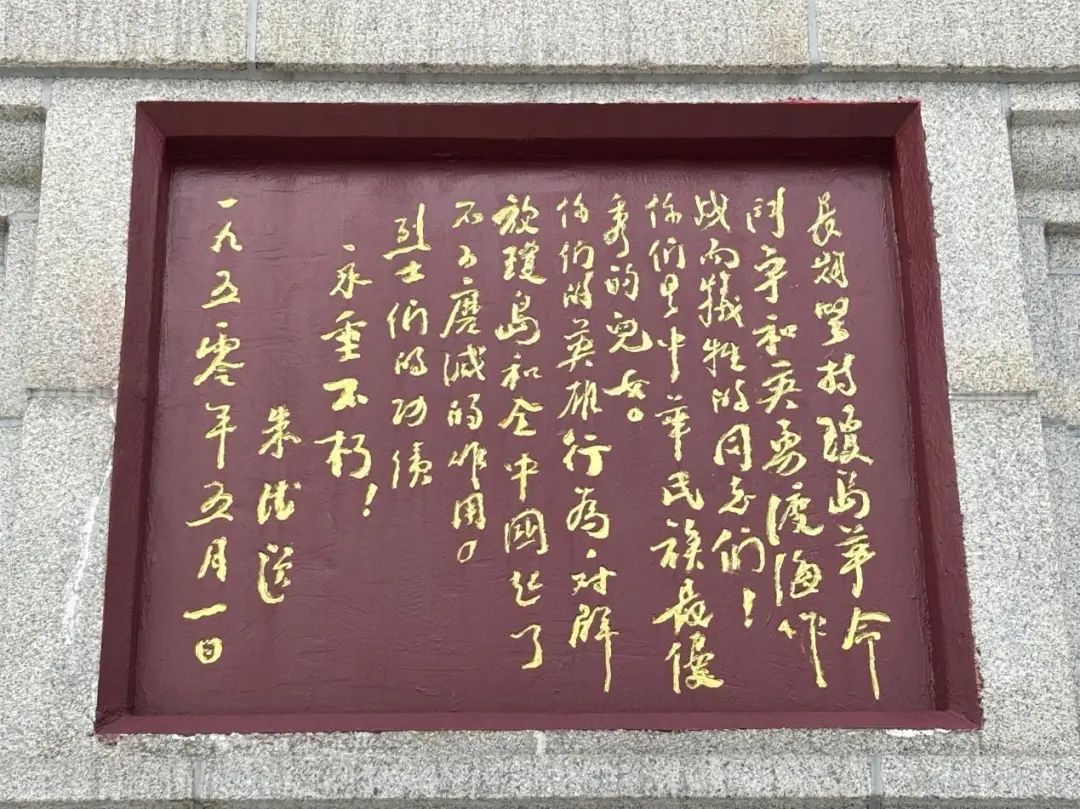 長期堅持瓊島革命
鬥争和英勇渡海作
战而犧牲的同志们！
你们是中華民族最優
秀的兒女。
你们的英雄行為，对解
放瓊島和全中國起了
不可磨滅的作用。
烈士们的功績
永垂不朽！
朱德題
一九五零年五月一日